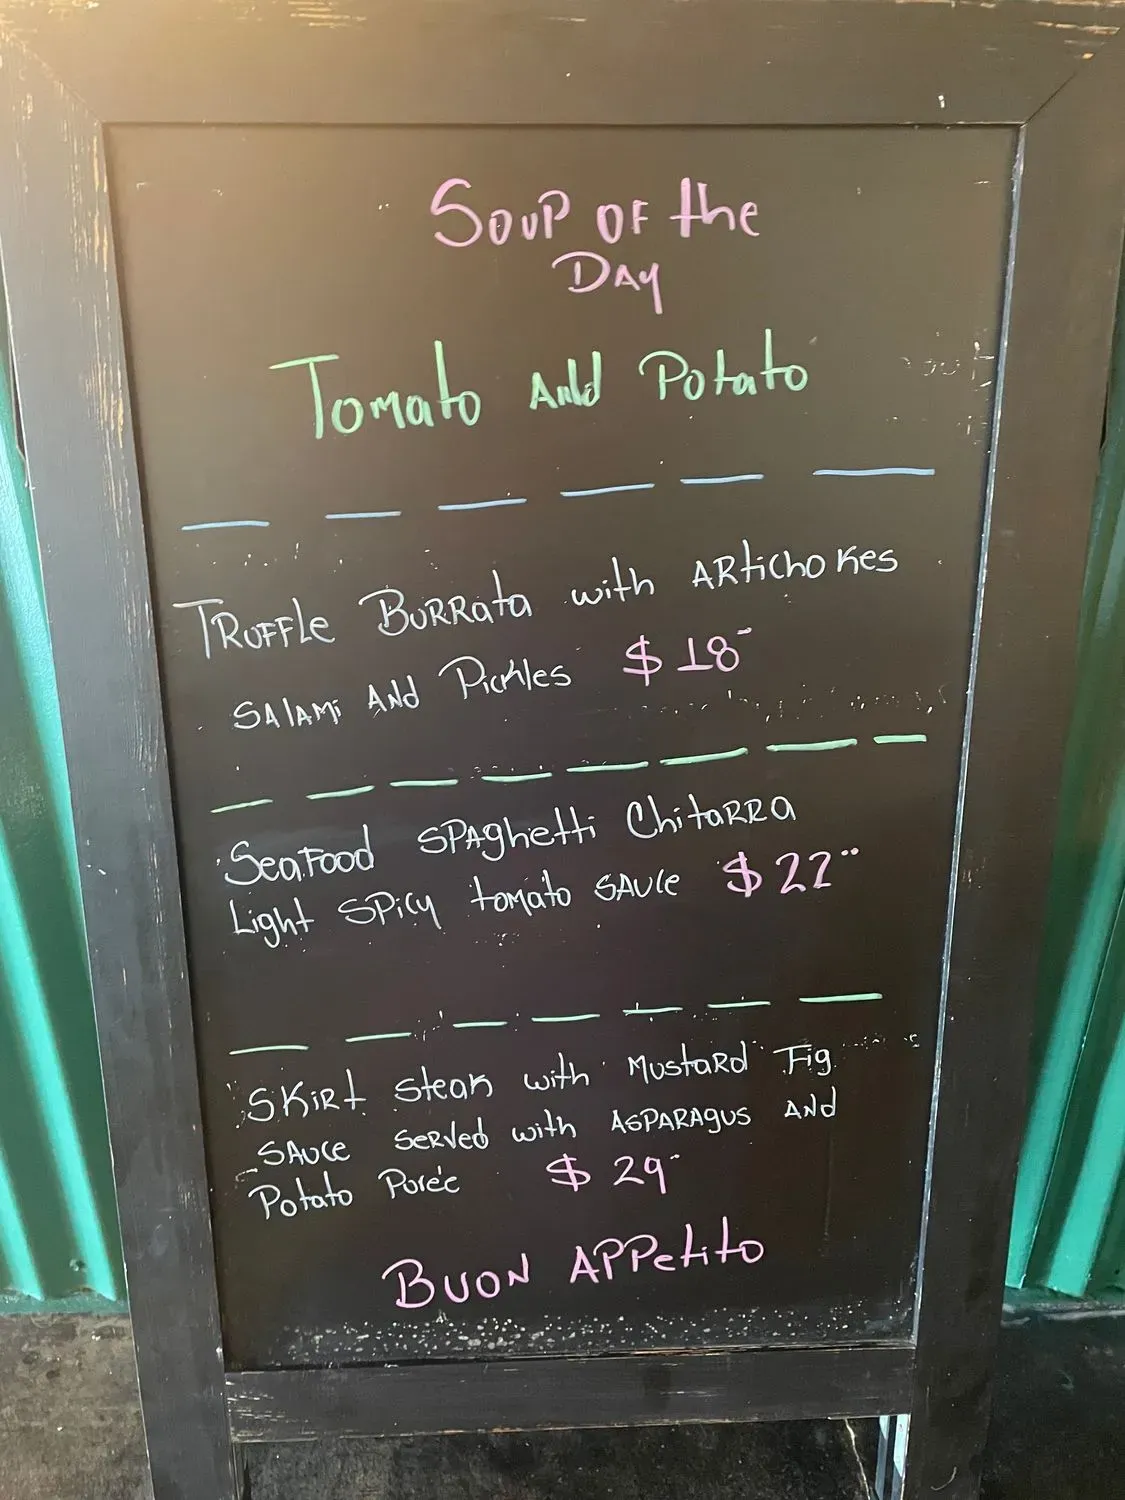 Soup of the
Day
Tomato and Potato
Truffle Burrata with Artichokes
Salami and Pickles $18
Seafood Spaghetti Chitarra
Light Spicy tomato sauce $22
Skirt steak with Mustard Fig
sauce served with Asparagus and
Potato Poreé $29
Buon Appetito